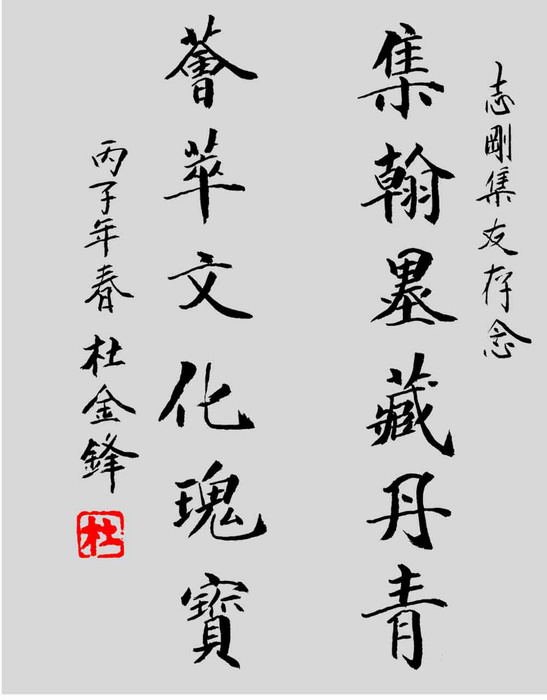 志剛集友存念
集翰墨藏丹青
薈萃文化瑰寶
丙子年春 杜金鋒
杜